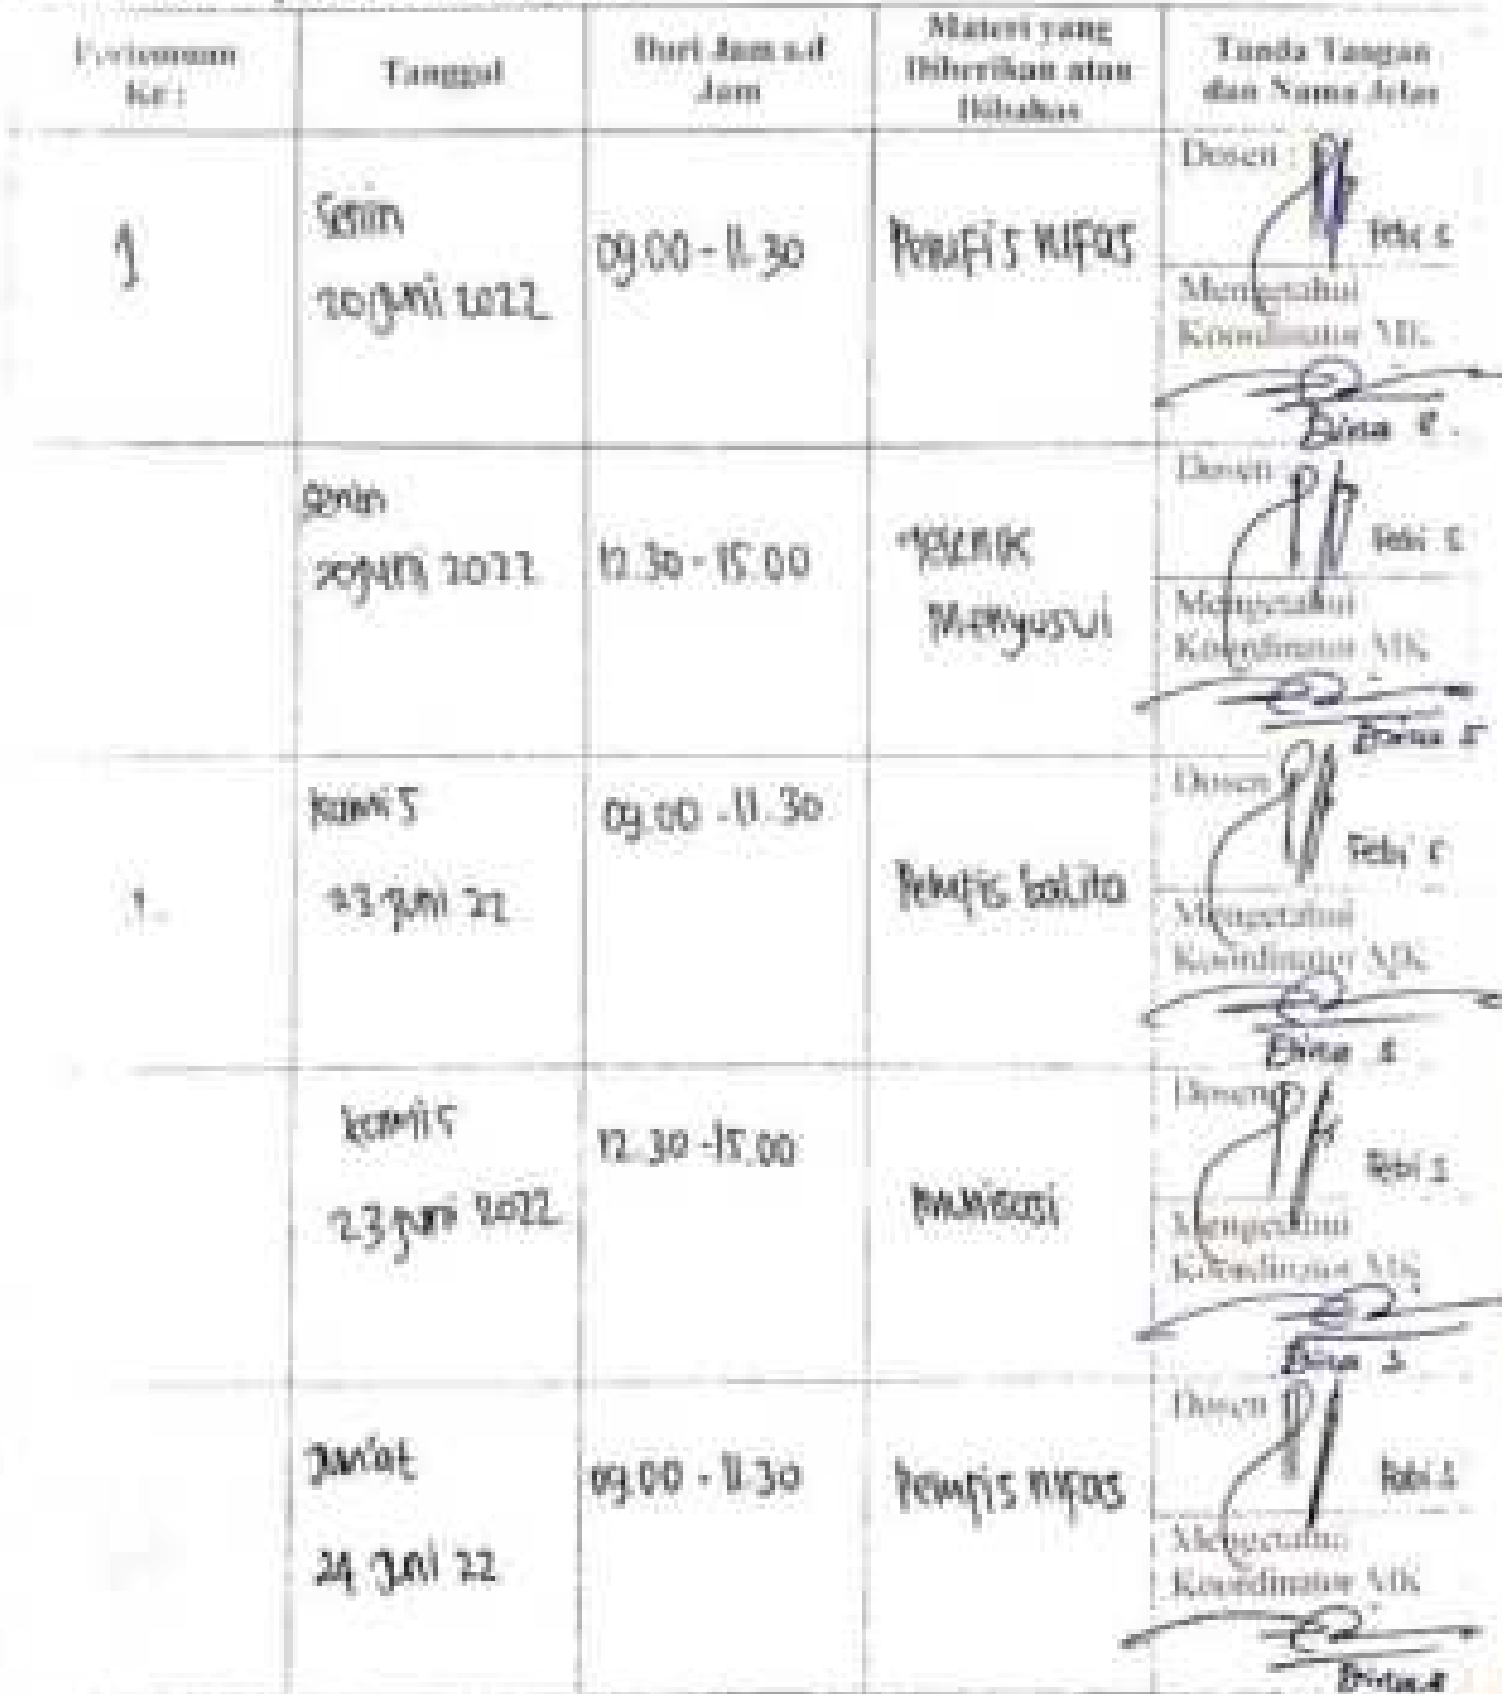 Pertemuan
Ke :
Tanggal
Dari Jam s.d
Jam
Materi yang
Diberikan atau
Dibahas
Tanda Tangan
dan Nama Jelas
1
Senin
20 Juni 2022
09.00 - 11.30
Pemfis nifas
Dosen :
Febi S
Mengetahui
Koordinator MK
Senin
20 Juni 2022
12.30 - 15.00
Teknik
Menyusui
Dosen
Febi S
Mengetahui
Koordinator MK
Kamis
23 Juni 22
09.00 - 11.30
Pemfis balita
Dosen
Febi S
Mengetahui
Koordinator MK
Kamis
23 Juni 2022
12.30 - 15.00
Imunisasi
Dosen
Febi S
Mengetahui
Koordinator MK
Jum'at
24 Juni 22
09.00 - 11.30
Pemfis nifas
Dosen
Febi S
Mengetahui
Koordinator MK